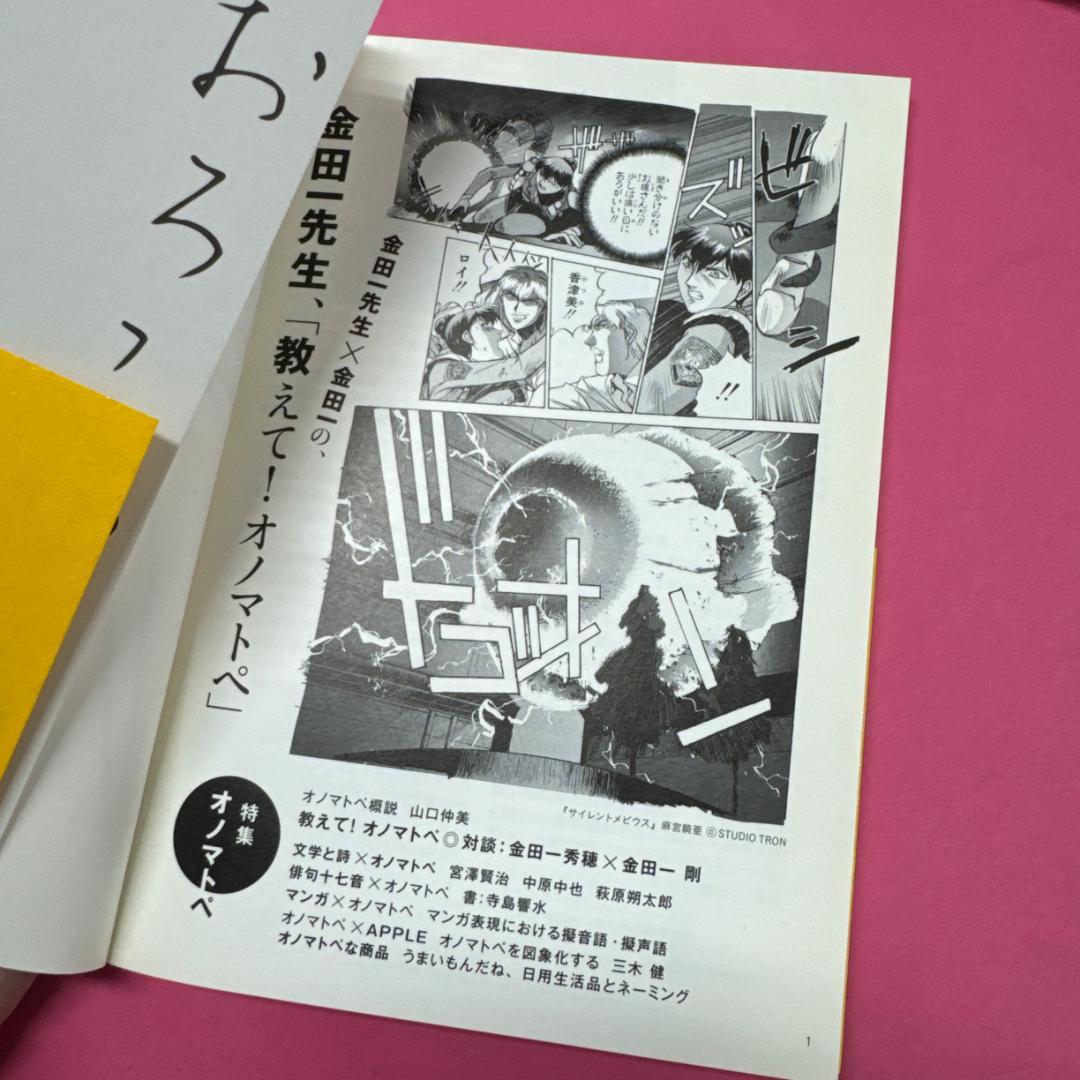 おろ
金田一先生、「教えて！オノマトペ」
金田一先生×金田一の、
聞き分けのない
お嬢さんだ!!
少しは痛い目に
あうがいい!!
ズ
ッ
ゼ
ン
ロイ!!
香津美!!
かつみ
!!
特集
オノマトペ
『サイレントメビウス』麻宮騎亜 ©STUDIO TRON
オノマトペ概説 山口仲美
教えて！オノマトペ◎対談：金田一秀穂×金田一 剛
文学と詩×オノマトペ 宮澤賢治 中原中也 萩原朔太郎
俳句十七音×オノマトペ 書：寺島響水
マンガ×オノマトペ マンガ表現における擬音語・擬声語
オノマトペ×APPLE オノマトペを図象化する 三木 健
オノマトペな商品 うまいもんだね、日用生活品とネーミング
1